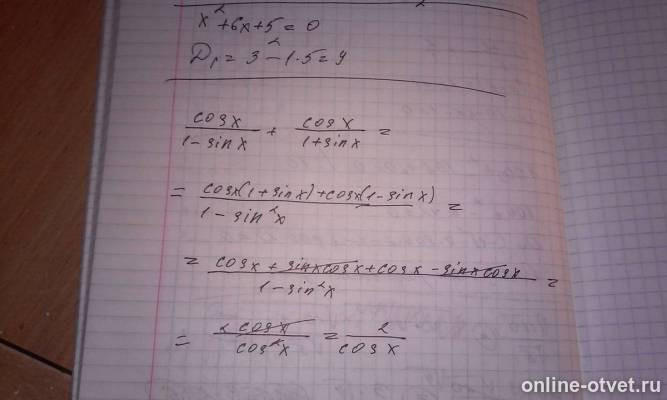 x² + 6x + 5 = 0
D₁ = 3² - 1·5 = 4
cosx/(1 - sinx) + cosx/(1 + sinx) =
= (cosx(1 + sinx) + cosx(1 - sinx))/(1 - sin²x) =
= (cosx + sinxcosx + cosx - sinxcosx)/(1 - sin²x) =
= 2cosx/cos²x = 2/cosx
online-otvet.ru